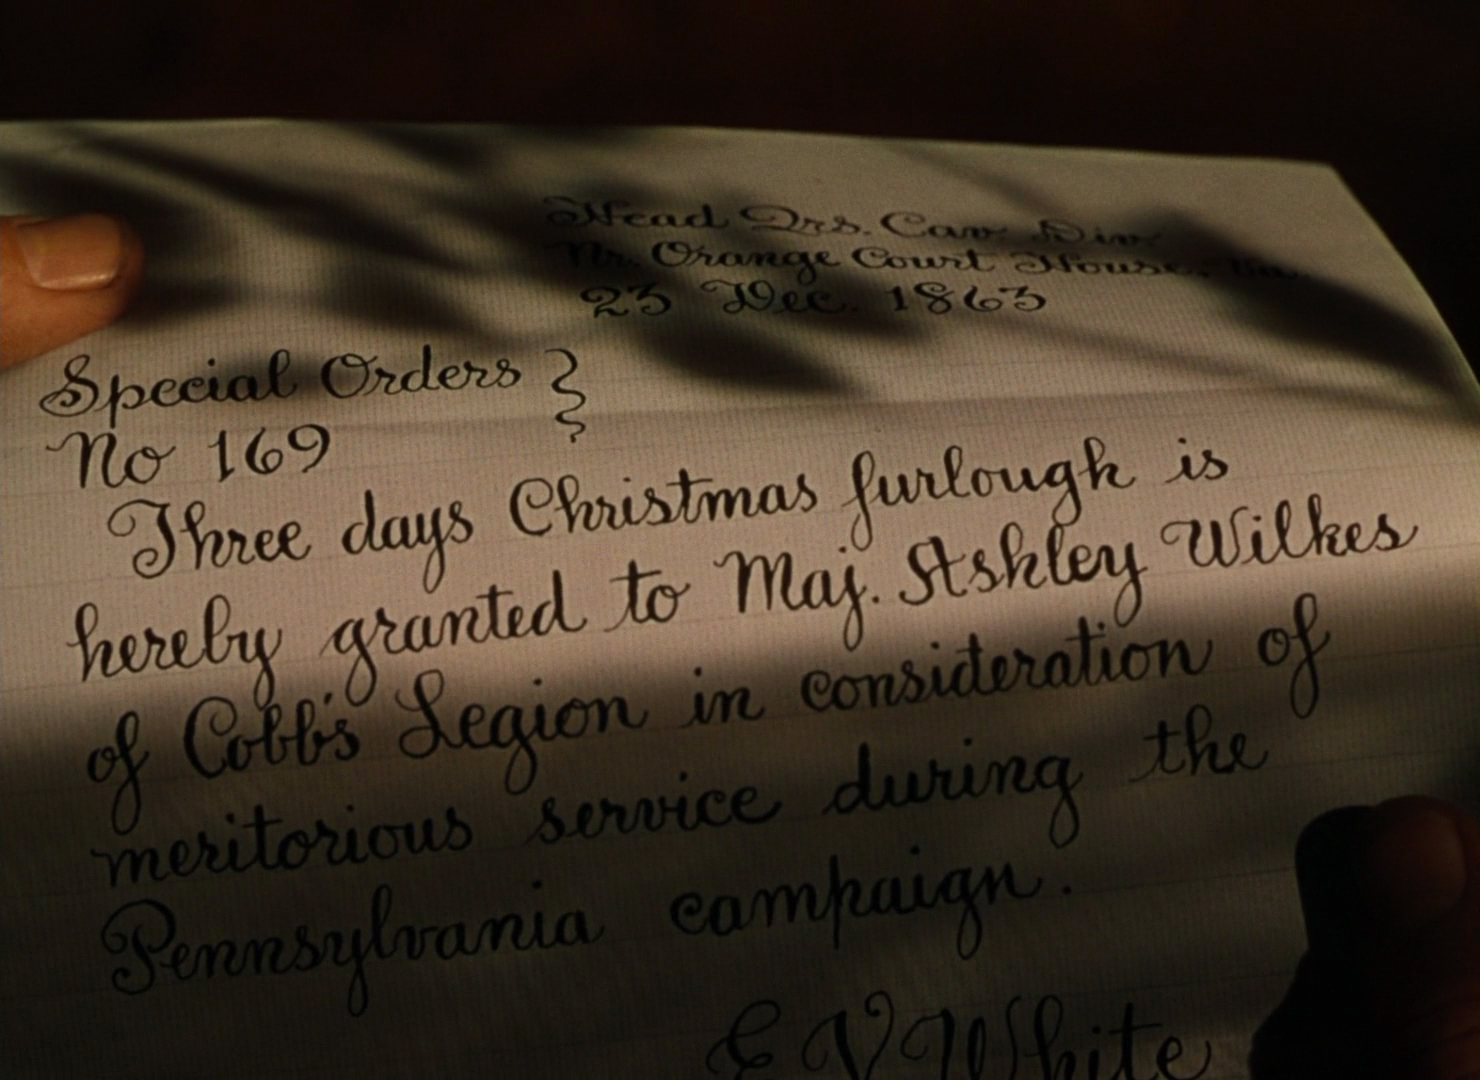 Head Qrs. Cav Div
Nr. Orange Court House, Va.
23 Dec. 1863
Special Orders }
No 169
Three days Christmas furlough is
hereby granted to Maj. Ashley Wilkes
of Cobb's Legion in consideration of
meritorious service during the
Pennsylvania campaign.
E V White